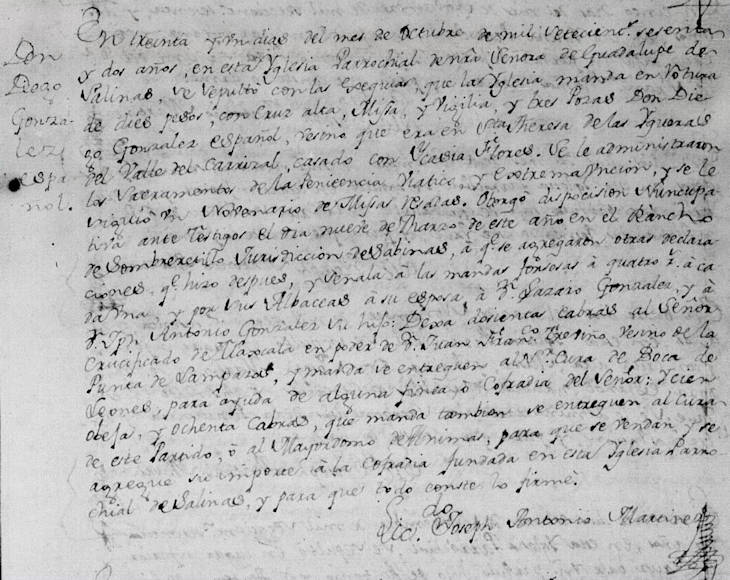 Don
Diego
Gonza-
lez
espa-
ñol.
En treinta y un dias del mes de Octubre de mil Setecien.s sesenta
y dos años, en esta Yglesia Parrochial de nrâ Señora de Guadalupe de
Salinas, se sepultò con las Exequias, que la Yglesia manda en
de dies pesos con Cruz alta, Missa, y Vigilia, y tres Pozas Don Die-
go Gonzalez español, vesino que era en Sta Theresa de las Ygueras
del Valle del Carrizal, casado con Ycasia Flores. Se le administraron
los Sacramentos de la Penicencia, Viatico, y Extrema Uncion, y se le
un Novenario de Missas resadas. Otorgò disposision Nuncupa-
tiva ante Testigos el dia nueve de Marzo de este año en el Rancho
de Sombreretillo Jurisdiccion de Sabinas, à q.e se agregaron otras declara-
ciones, q.e hizo despues, y señala à las mandas forsosas à quatro r.s à ca-
da una, y por sus Albaceas à su esposa, à D.n Lazaro Gonzalez, y à
D.n Jph. Antonio Gonzalez su hijo: Dexa dosientas cabras al Señor
Crucificado de Tlaxcala en poder de D.n Juan Fran.co Treviño vesino de la
Punta de Lampazos, y manda se entreguen al S.r Cura de Boca de
Leones, para ayuda de alguna finca ò Cofradia del Señor: Ycien
obejas, y ochenta Cabras, que manda tambien se entreguen al Cura
de este Partido, ò al Mayordomo de Animas, para que se vendan, y se
agregue su importe à la Cofradia fundada en esta Yglesia Parro-
chial de Salinas, y para que todo conste lo firmè.
Lic.do Joseph Antonio Martinez